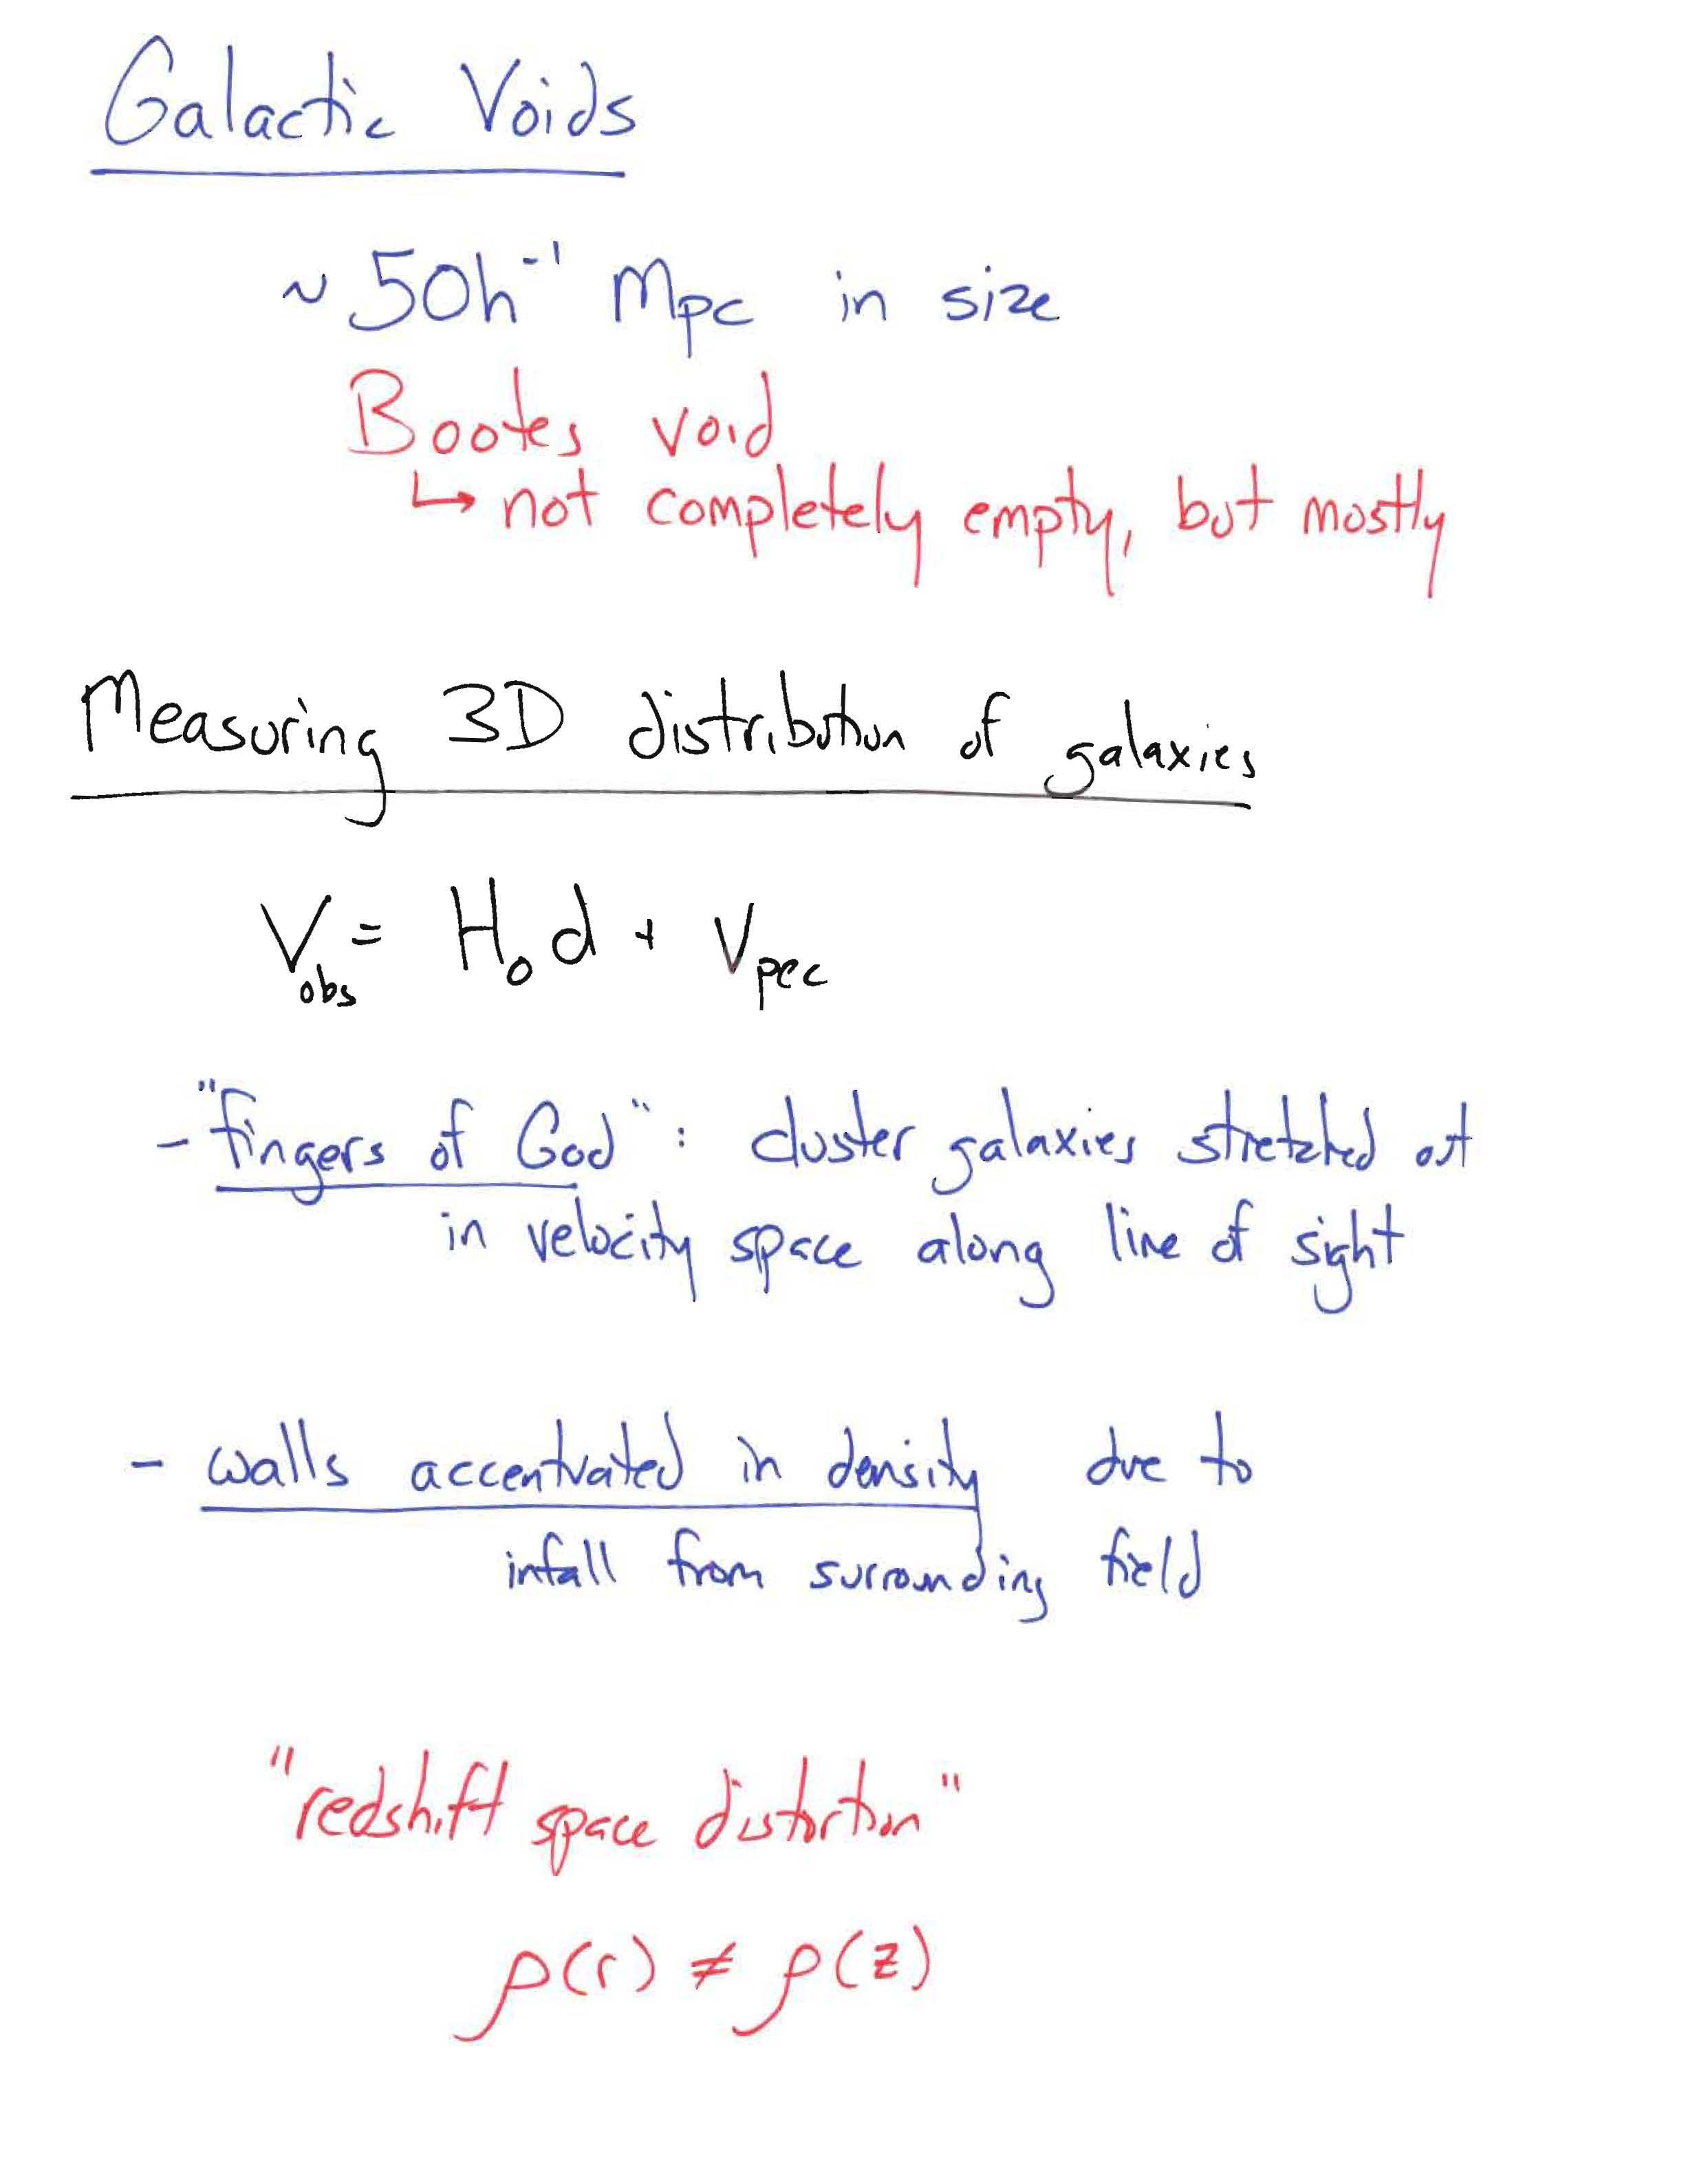 Galactic Voids
~ 50h⁻¹ Mpc in size
Bootes void
↳ not completely empty, but mostly
Measuring 3D distribution of galaxies
V_obs = H₀ d + V_pec
- "fingers of God": cluster galaxies stretched out
in velocity space along line of sight
- walls accentuated in density due to
infall from surrounding field
"redshift space distortion"
ρ(r) ≠ ρ(z)